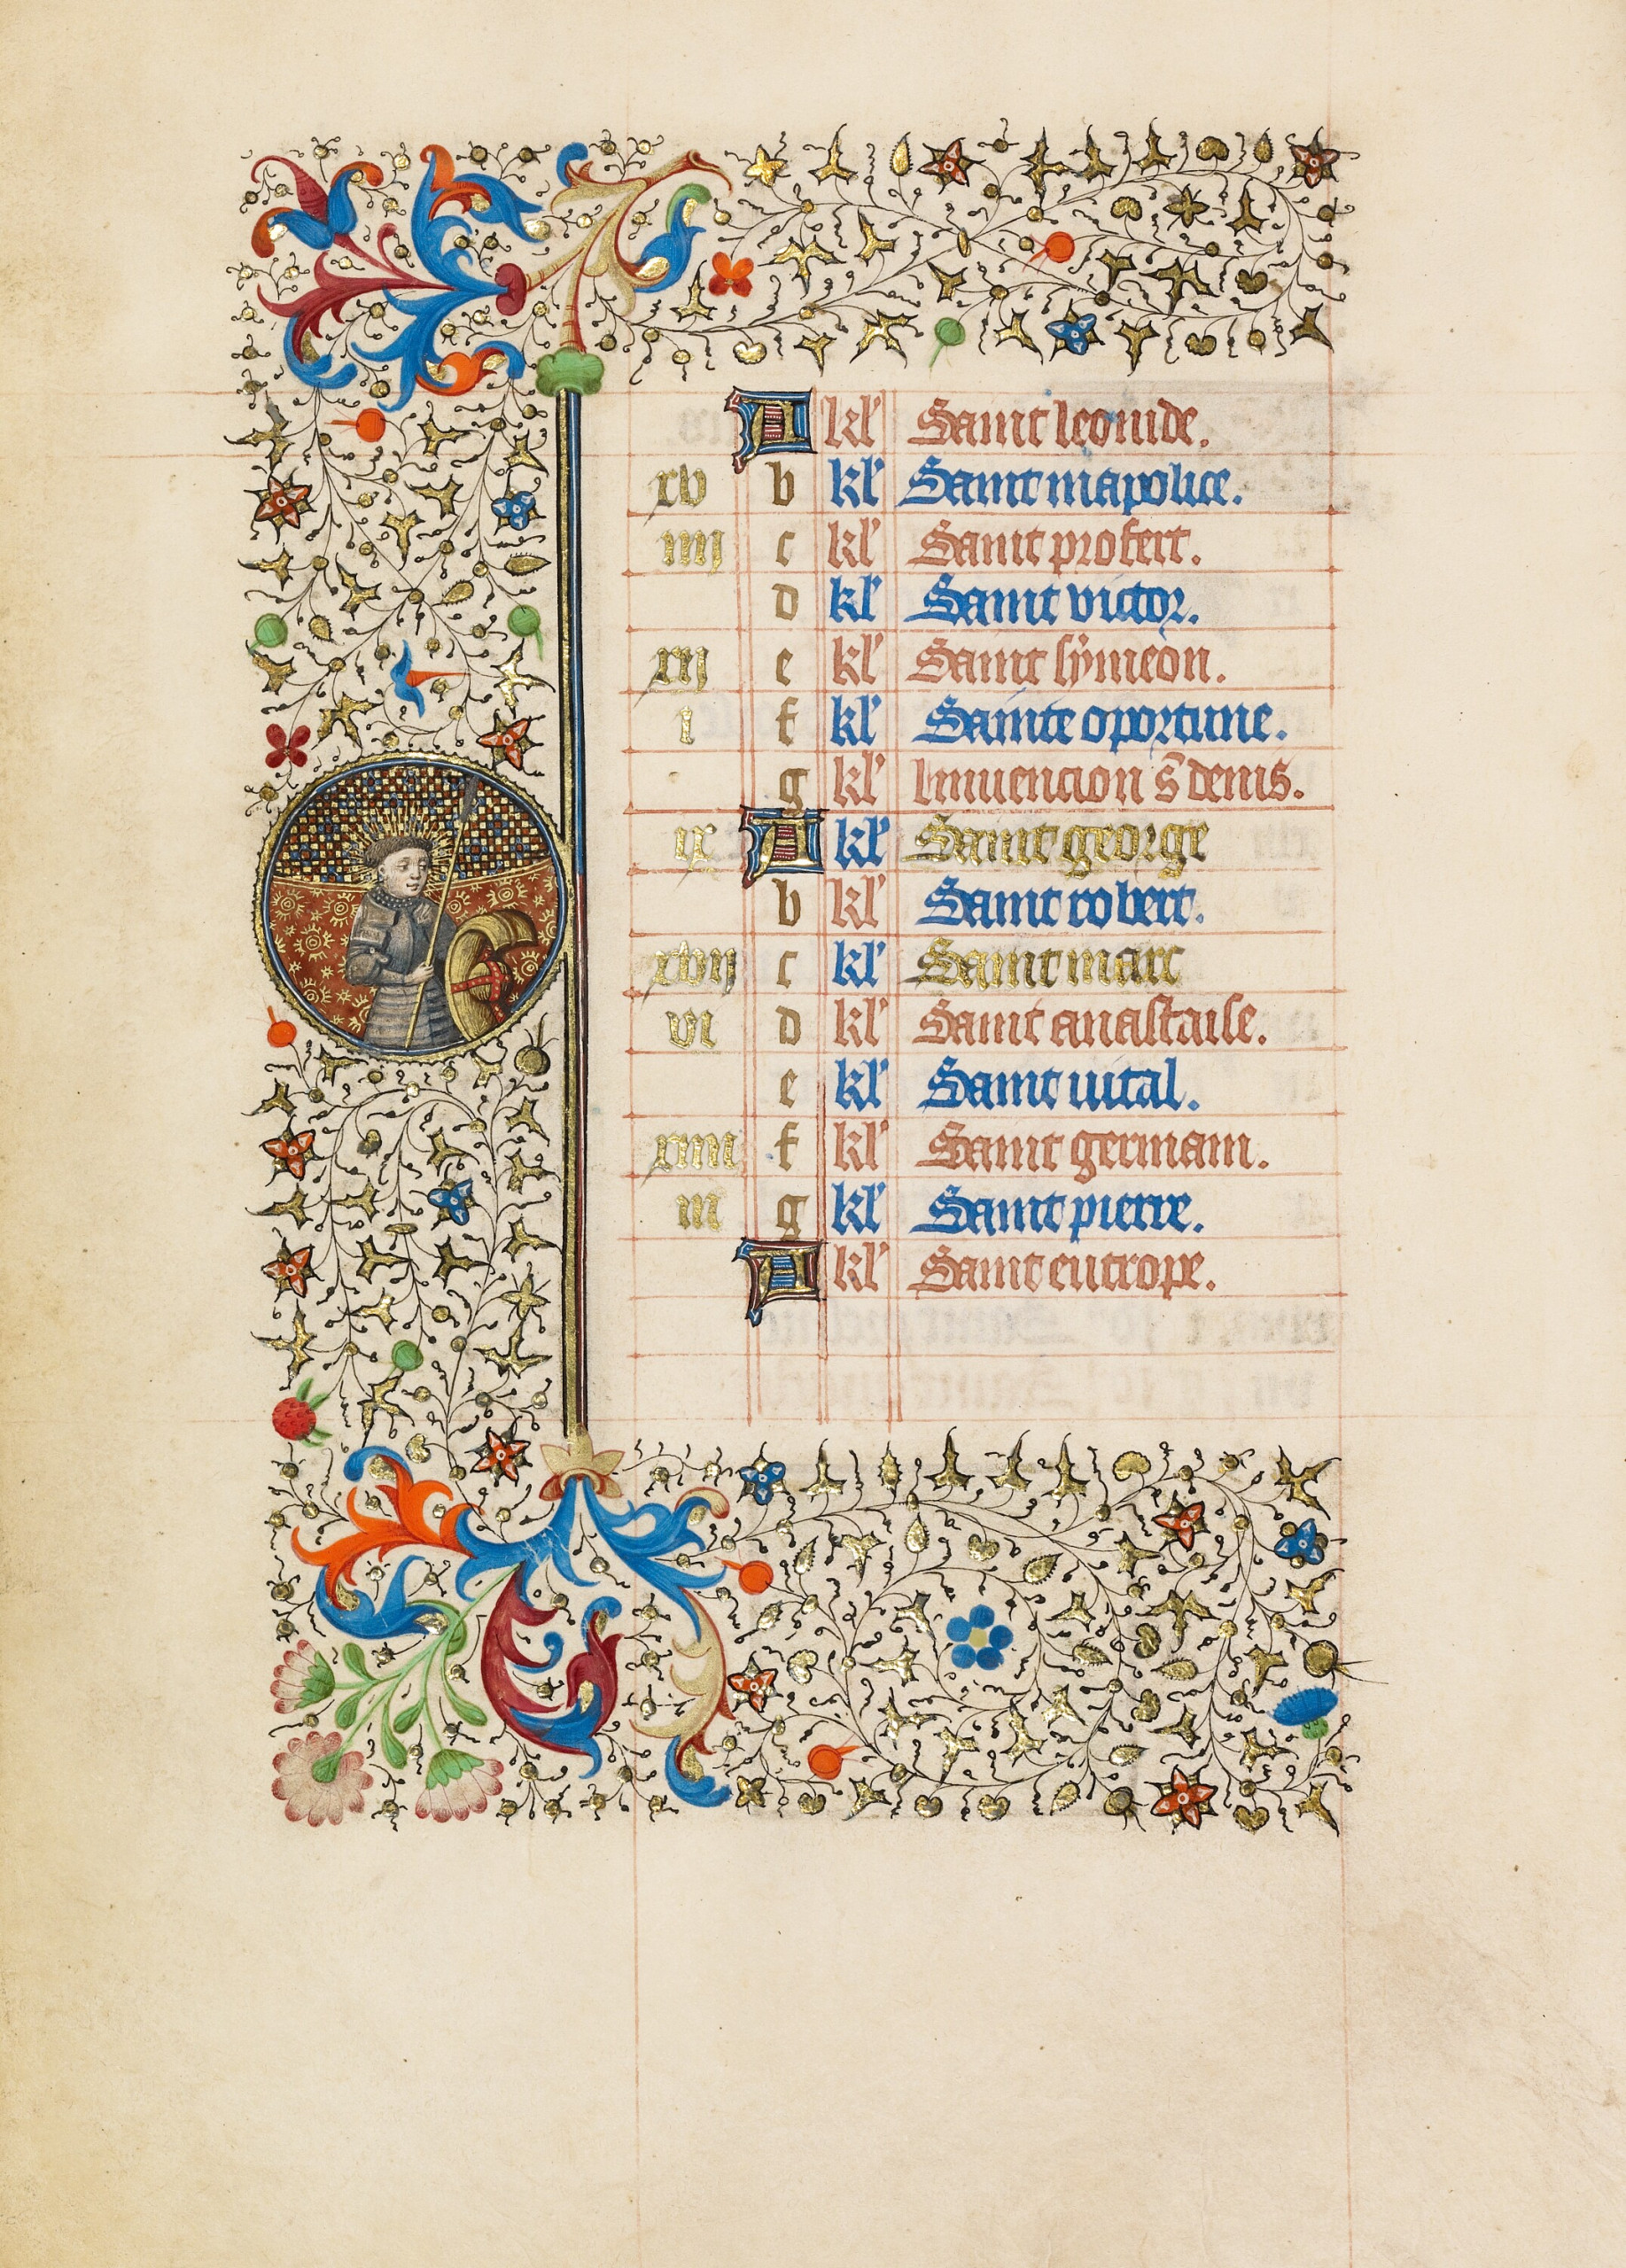 A kl' Saint leonide.
xv b kl' Saint mapolice.
iiij c kl' Saint profert.
d kl' Saint victor.
xij e kl' Saint symeon.
i f kl' Sainte oportune.
g kl' Linuencion s̄ denis.
ix A kl' Saint george
b kl' Saint robert.
xvij c kl' Saint marc
vi d kl' Saint anastaise.
e kl' Saint uital.
xiiii f kl' Saint germain.
iii g kl' Saint pierre.
A kl' Saint eutrope.